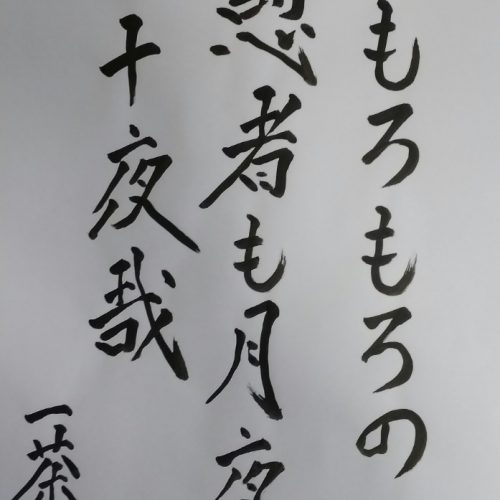 もろもろの
愚者も月夜
十夜哉
一茶